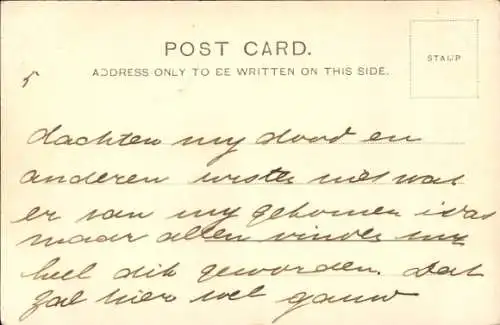 POST CARD.
ADDRESS ONLY TO BE WRITTEN ON THIS SIDE.
STAMP
5
dachten my dood en
anderen wisten niet wat
er van my gekomen is
maar allen vinden my
heel dik geworden. Dat
zal hier wel gauw